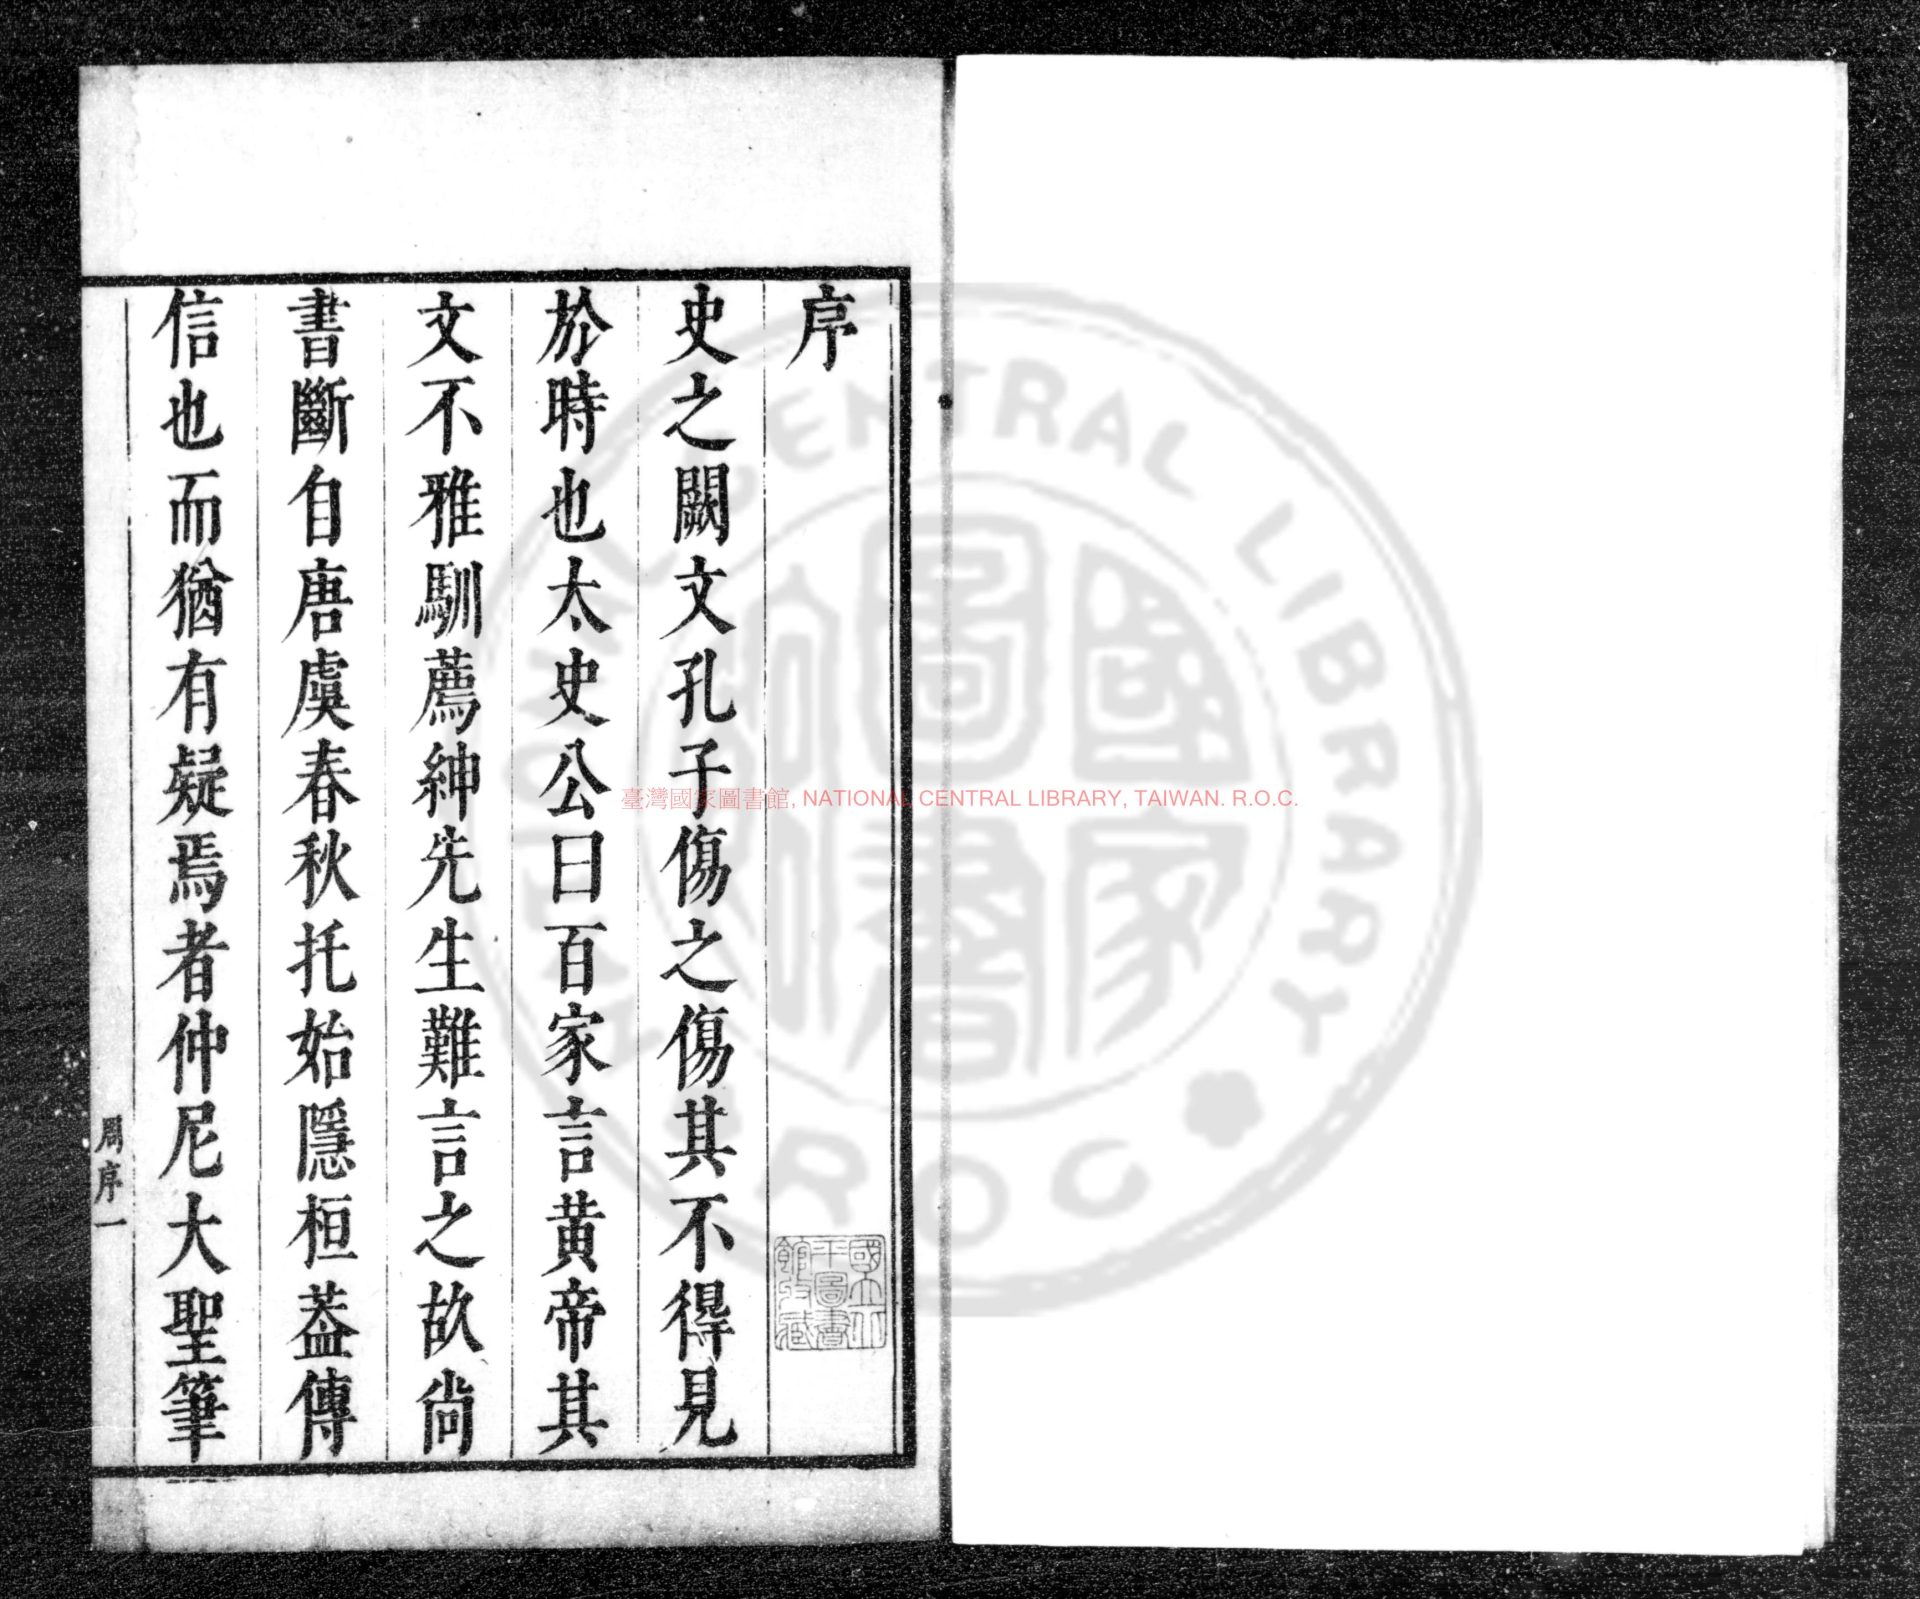 序
史之闕文孔子傷之傷其不得見
於時也太史公曰百家言黄帝其
文不雅馴薦紳先生難言之故尚
書斷自唐虞春秋托始隱桓葢傳
信也而猶有疑焉者仲尼大聖筆
周序一
國立北平圖書館收藏
臺灣國家圖書館, NATIONAL CENTRAL LIBRARY, TAIWAN. R.O.C.
國家圖書
NATIONAL CENTRAL LIBRARY
R.O.C